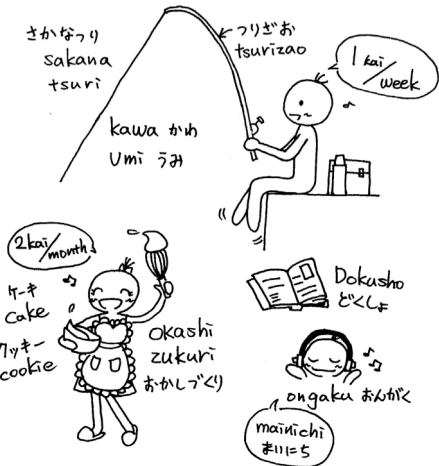 さかなつり
sakana
tsuri
←つりざお
tsurizao
1 kai/
week
kawa かわ
Umi うみ
2kai/
month
ケーキ
cake
クッキー
cookie
okashi
zukuri
おかしづくり
Dokusho
どくしょ
ongaku おんがく
mainichi
まいにち